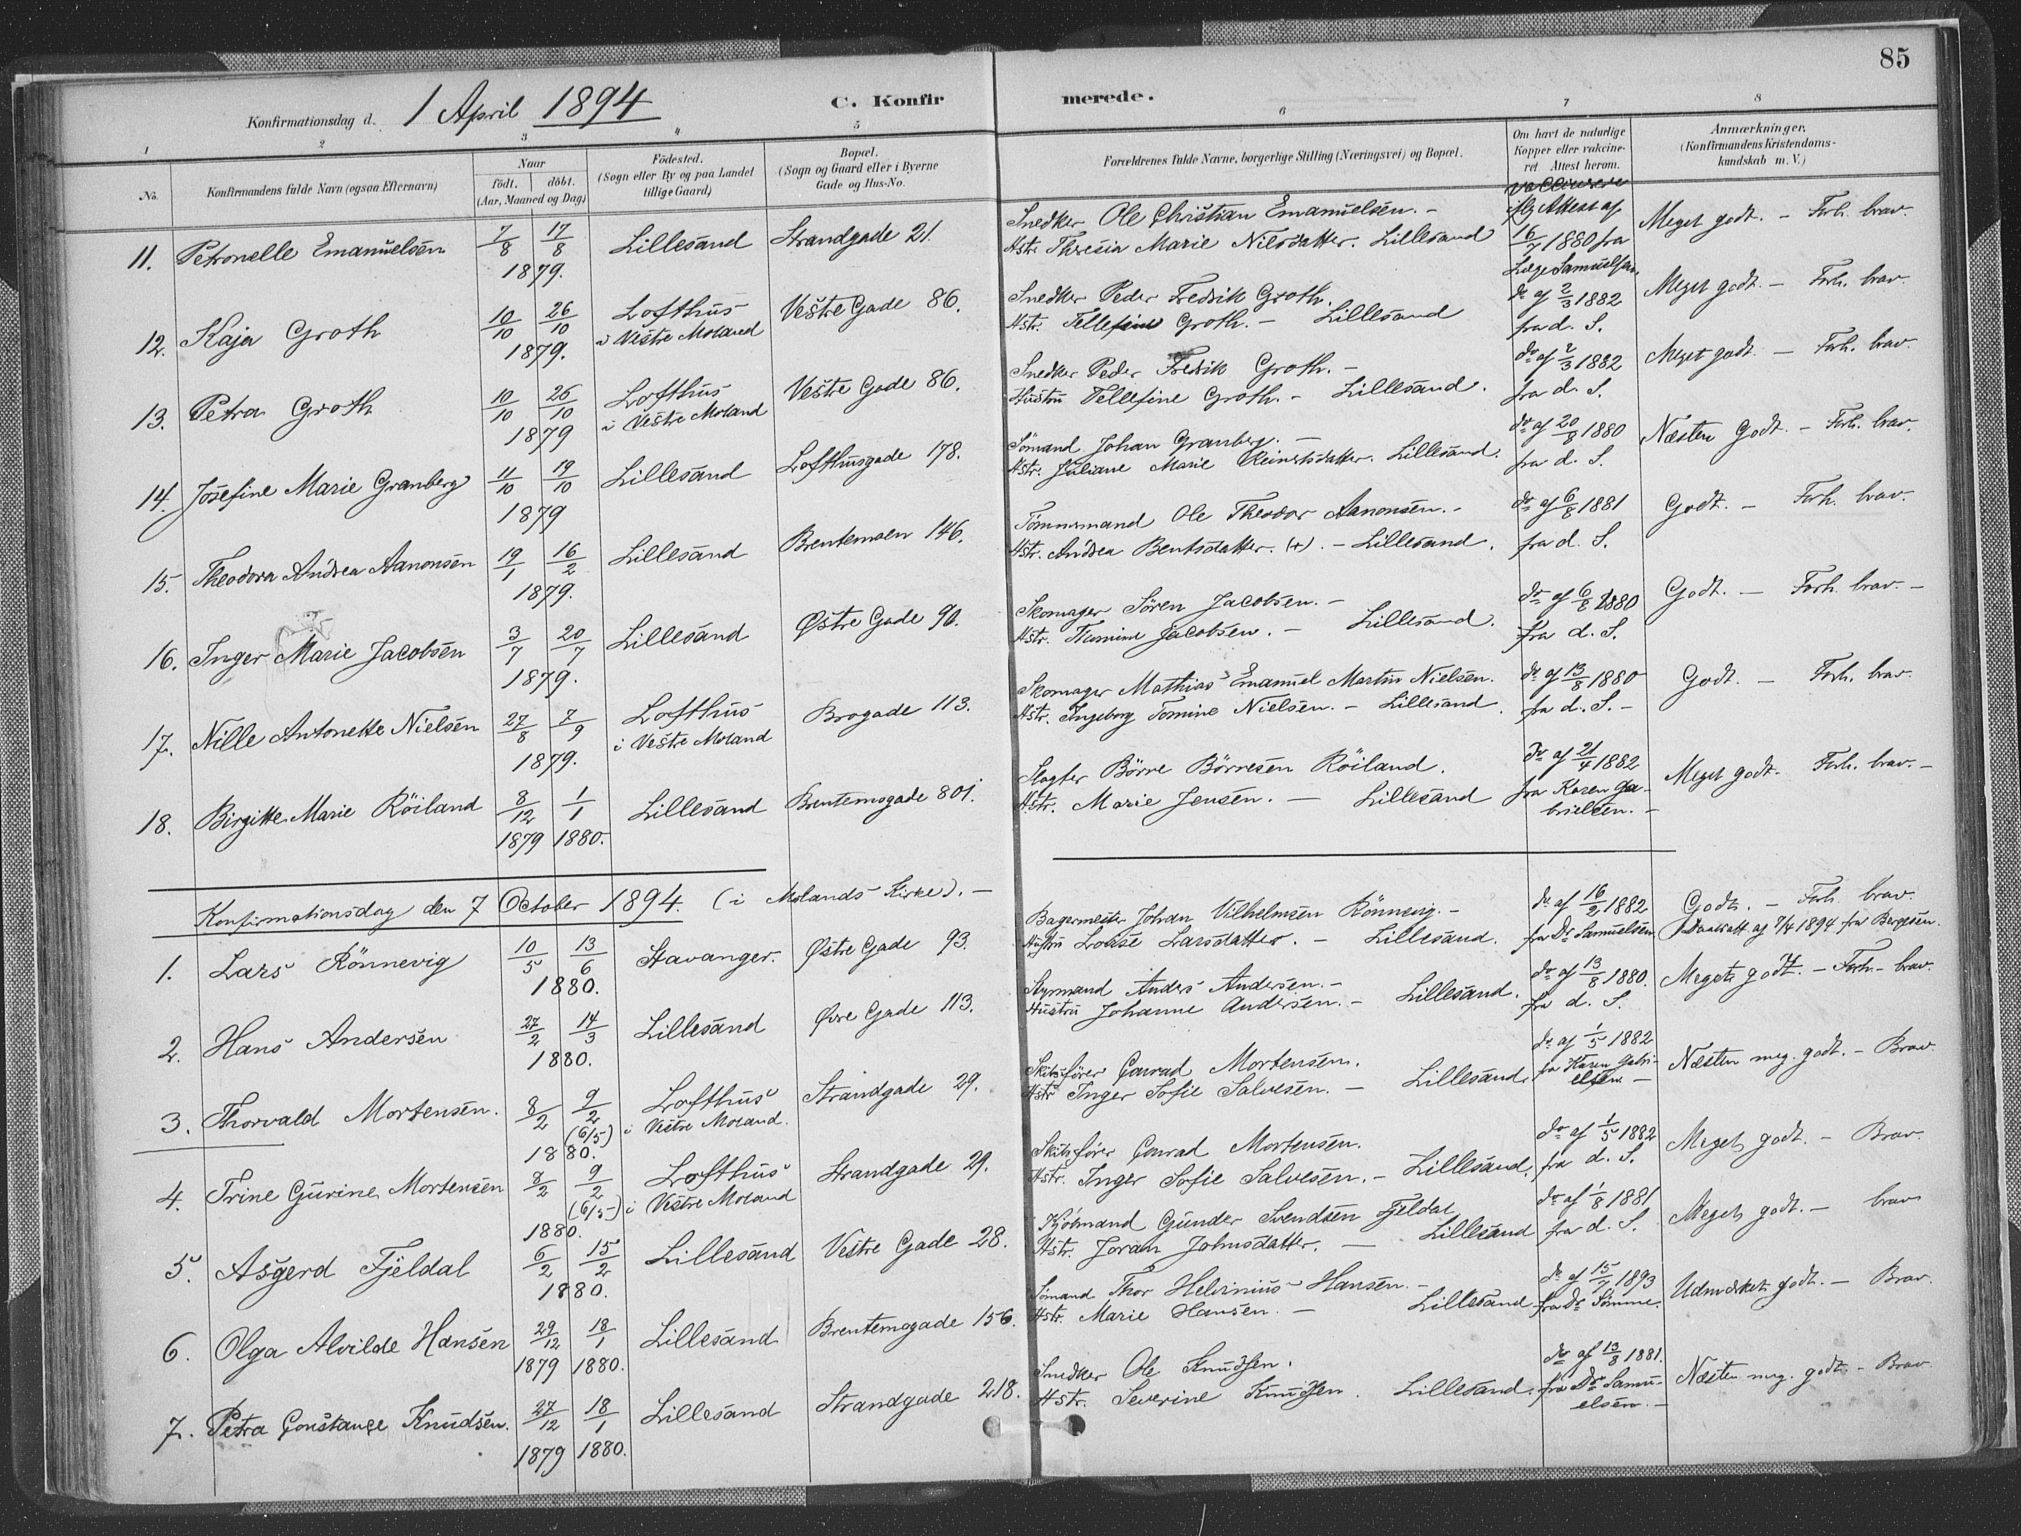 85
Konfirmationsdag d. 1 April 1894
C. Konfirmerede.
1 2 3 4 5 6 7 8
No.
Konfirmandens fulde Navn (ogsaa Efternavn)
Naar
födt. döbt.
(Aar, Maaned og Dag)
Födested.
(Sogn eller By og paa Landet
tillige Gaard)
Bopæl.
(Sogn og Gaard eller i Byerne
Gade og Hus-No.
Forældrenes fulde Navne, borgerlige Stilling (Næringsvei) og Bopæl.
Om havt de naturlige
Kopper eller vakcine-
ret. Attest herom.
Anmærkninger.
(Konfirmandens Kristendoms-
kundskab m. V.)
11. Petronelle Emanuelsen 7/8 17/8 1879. Lillesand Strandgade 21.
Snedker Ole Christian Emanuelsen. -
Hstr. Theresia Marie Nilsdatter. Lillesand
iflg Attest af
16/7 1880 fra
Læge Samuelsen
Meget godt. - Forh. brav.
12. Kaja Groth 10/10 26/10 1879. Lofthus
i Vestre Moland Vestre Gade 86.
Snedker Peder Fredrik Groth.
Hstr. Tellefine Groth. - Lillesand
do af 2/3 1882
fra d. S.
Meget godt. - Forh. brav.
13. Petra Groth 10/10 26/10 1879 Lofthus
i Vestre Moland Vestre Gade 86.
Snedker Peder Fredrik Groth. -
Hustru Tellefine Groth. - Lillesand.
do af 2/3 1882
fra d. S.
Meget godt. - Forh. brav.
14. Josefine Marie Granberg 11/10 19/10 1879 Lillesand Lofthusgade 178.
Sömand Johan Granberg. -
Hstr. Juliane Marie Reinertsdatter. Lillesand.
do af 20/8 1880
fra d. S.
Næsten Godt. - Forh. brav.
15. Theodora Andrea Aanonsen 19/1 16/2 1879. Lillesand Brentemoen 146.
Tömmermand Ole Theodor Aanonsen. -
Hstr. Andrea Bentsdatter. (+). - Lillesand.
do af 6/8 1881
fra d. S.
Godt. - Forh. brav.
16. Inger Marie Jacobsen 3/7 20/7 1879. Lillesand Østre Gade 90.
Skomager Sören Jacobsen. -
Hstr. Thomine Jacobsen. - Lillesand.
do af 6/8 1880
fra d. S.
Godt. - Forh. brav. -
17. Nille Antonette Nielsen 27/8 7/9 1879. Lofthus
i Vestre Moland Brogade 113.
Skomager Mathias Emanuel Martin Nielsen.
Hstr. Ingeborg Tomine Nielsen. - Lillesand.
do af 13/8 1880
fra d. S. -
Godt. - Forh. brav.
18. Birgitte Marie Röiland 8/12 1/1 1879 1880. Lillesand Brentemogade 801.
Slagter Börre Börresen Röiland.
Hstr. Marie Jensen. - Lillesand
do af 21/4 1882
fra Karen Ga-
brielsen. -
Meget godt. Forh. brav. -
Konfirmationsdag den 7 October 1894. (i Molands Kirke). -
1. Lars Rönnevig 10/5 13/6 1880. Stavanger. Østre Gade 93.
Bagermester Johan Vilhelmsen Rönnevig. -
Hustru Lovise Larsdatter. - Lillesand.
do af 16/2 1882
fra Dr Samuelsen
Godt. - Forh. brav.
Daabsatt. af 7/4 1894 fra Bergesen.
2. Hans Andersen 27/2 14/3 1880. Lillesand Øvre Gade 113.
Styrmand Anders Andersen. -
Hustru Johanne Andersen. - Lillesand.
do af 13/8 1880.
fra d. S.
Meget godt. - Forh. - brav.
3. Thorvald Mortensen. 8/2 9/2 (6/5) 1880. Lofthus
i Vestre Moland. Strandgade 29.
Skibsförer Conrad Mortensen.
Hstr Inger Sofie Salvesen. - Lillesand.
do af 1/5 1882
fra Karen Gabri-
elsen. -
Næsten meg. godt. - Brav.
4. Trine Gurine Mortensen 8/2 9/2 (6/5) 1880. Lofthus
i Vestre Moland Strandgade 29.
Skibsförer Conrad Mortensen.
Hstr. Inger Sofie Salvesen. - Lillesand.
do af 1/5 1882
fra d. S.
Meget godt. - Brav.
5. Asgerd Fjeldal 6/2 15/2 1880. Lillesand Vestre Gade 28.
Kjöbmand Gunder Svendsen Fjeldal
Hstr. Joran Johnsdatter. - Lillesand
do af 1/8 1881
fra d. S.
Meget godt. - brav
6. Olga Alvilde Hansen 29/12 18/1 1879 1880. Lillesand Brentemogade 156.
Sömand Thor Helvinius Hansen. -
Hstr. Marie Hansen. - Lillesand
do af 15/7 1893
fra Dr Sömme.
Udmærket godt. - Brav.
7. Petra Constance Knudsen. 27/12 18/1 1879 1880. Lillesand Strandgade 218.
Snedker Ole Knudsen.
Hstr. Severine Knudsen. Lillesand.
do af 13/8 1881.
fra Dr Samu-
elsen. -
Næsten meg. godt. - Brav.